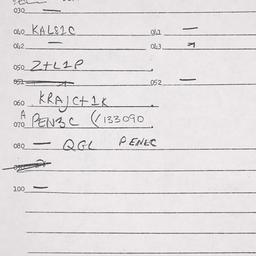 030 —
040 KAL81C 041 —
042 — 043
050 Z+L1P
051 052 —
060 KRAJC+1K
A
070 PEN3C (/133090
080 — QGL PENEC
100 —